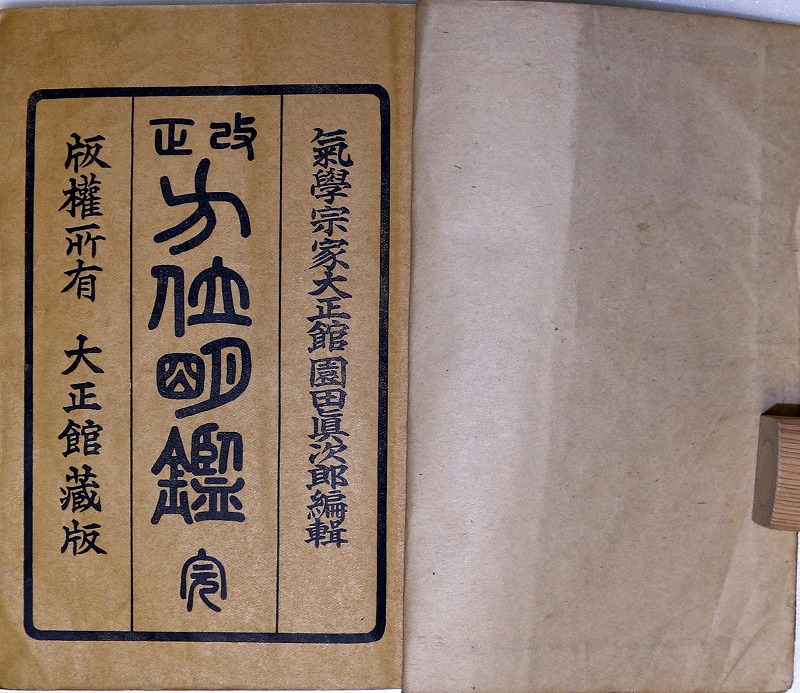 氣學宗家大正館園田眞次郎編輯
改正
方位明鑑 完
版權所有 大正館藏版